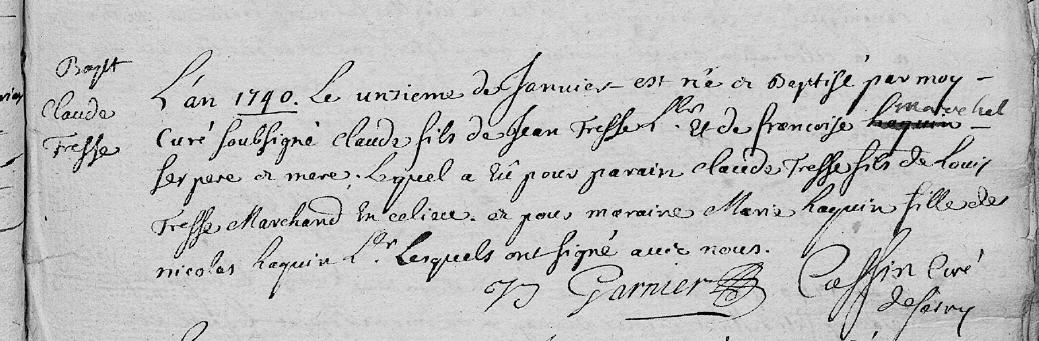 Bapt
Claude
Tresse
L'an 1740. Le unzieme de Janvier est né et Baptisé par moy
Curé soubsigné Claude fils de Jean Tresse L. Et de francoise haquin marechel
ses pere et mere, Lequel a Eü pour parain Claude Tresse fils de Louis
Tresse Marchand En ce lieu. et pour maraine Marie haquin fille de
nicolas haquin Lr. Lesquels ont signé avec nous.
Garnier Cassin Curé
de